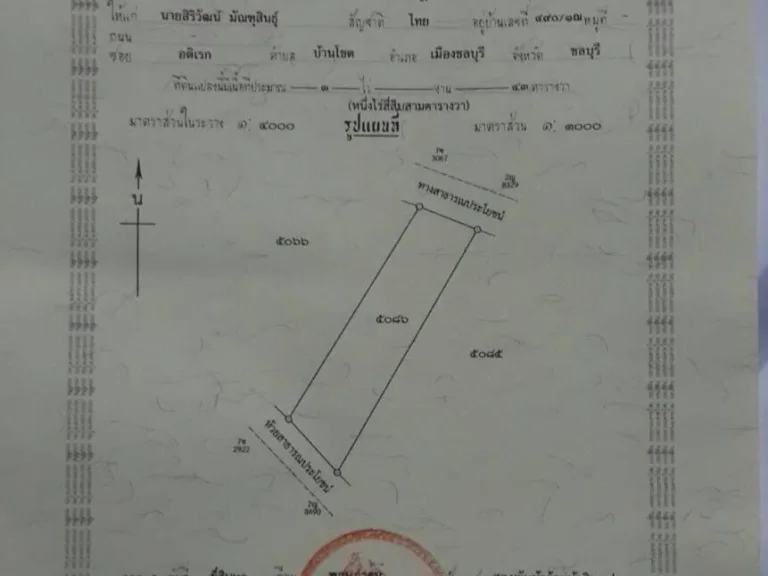 ให้แก่ นายสิริวัฒน์ มัณฑุสินธุ์ สัญชาติ ไทย อยู่บ้านเลขที่ ๔๙๐/๑๗ หมู่ที่ -
ถนน
ซอย อดิเรก ตำบล บ้านโขด อำเภอ เมืองชลบุรี จังหวัด ชลบุรี
ที่ดินแปลงนี้มีเนื้อที่ประมาณ ๑ ไร่ - งาน ๔๓ ตารางวา
(หนึ่งไร่สี่สิบสามตารางวา)
มาตราส่วนในระวาง ๑: ๔๐๐๐ รูปแผนที่ มาตราส่วน ๑: ๑๐๐๐
7ช
3067
2ญ
8329
ทางสาธารณประโยชน์
น
๕๐๖๖
๕๐๘๖
๕๐๘๕
ห้วยสาธารณประโยชน์
7ช
2922